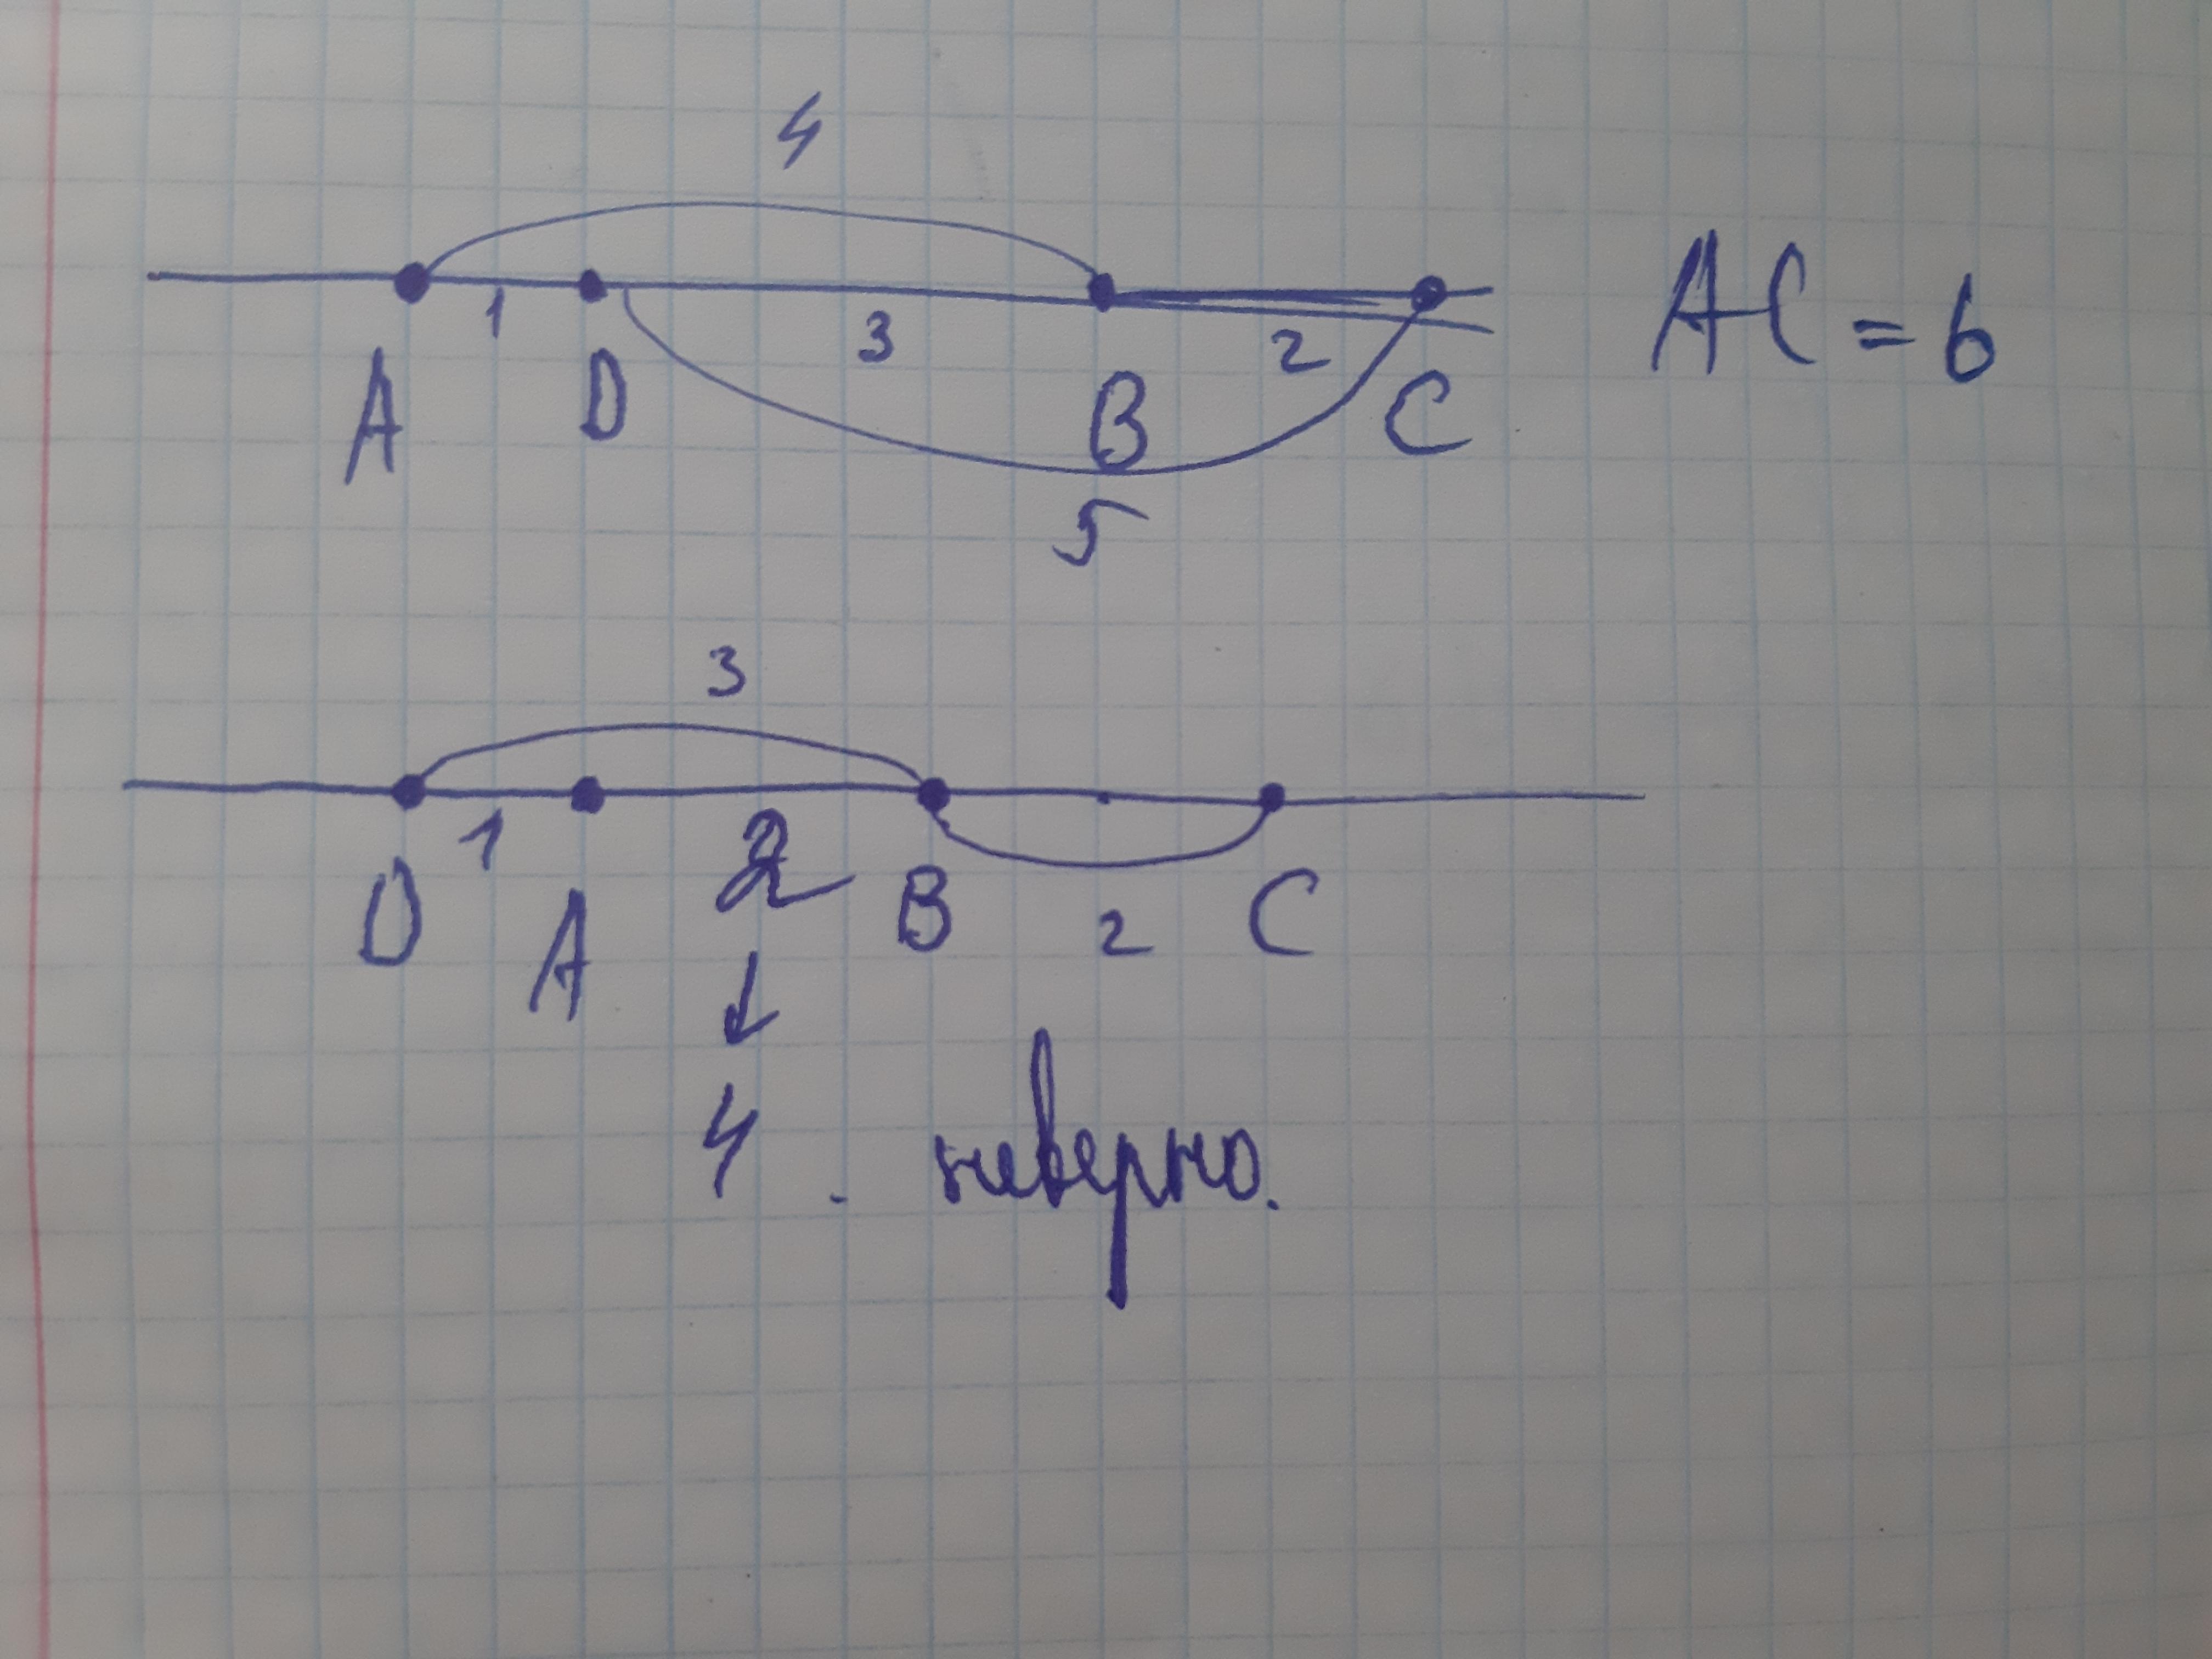 4
1 3 2 AC = 6
A D B C
5
3
1 2 2
D A B C
↓
4. неверно.